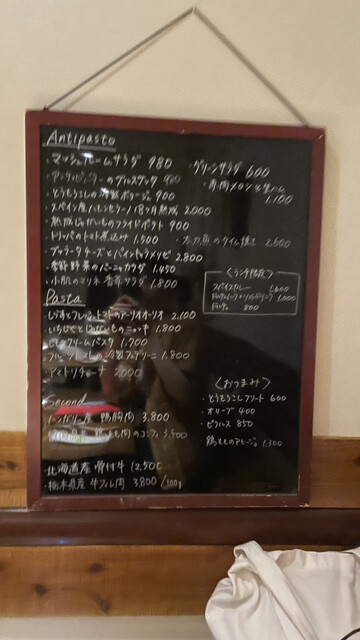 Antipasto
・マッシュルームサラダ 980
・グリーンサラダ 600
・アンティチョークのブルスケッタ 980
・赤肉メロンと生ハム 1,100
・とうもろこしの冷製ポタージュ 900
・スペイン産ハモンセラーノ18ヶ月熟成 2,000
・熟成じゃがいものフライドポテト 900
・トリッパのトマト煮込み 1,500
・太刀魚のタイム焼き 2,600
・ブッラータチーズとパイナップル 2,800
・季節野菜のバーニャカウダ 1,450
・小肌のマリネ 香草サラダ 1,800
〈ランチ限定〉
スパイスカレー
1,000
800
Pasta
しらすとフレッシュトマトのアーリオオーリオ 2,100
いちじくとじゃがいものニョッキ 1,800
クリームパスタ 1,900
冷製フェデリーニ 1,800
アマトリチャーナ 2,000
〈おつまみ〉
・とうもろこしフリット 600
・オリーブ 400
・ピクルス 850
1,300
Second
ハンガリー産 鴨胸肉 3,800
鴨もも肉のコンフィ 3,500
・北海道産 骨付牛 12,500
・栃木県産 牛フィレ肉 3,800/100g